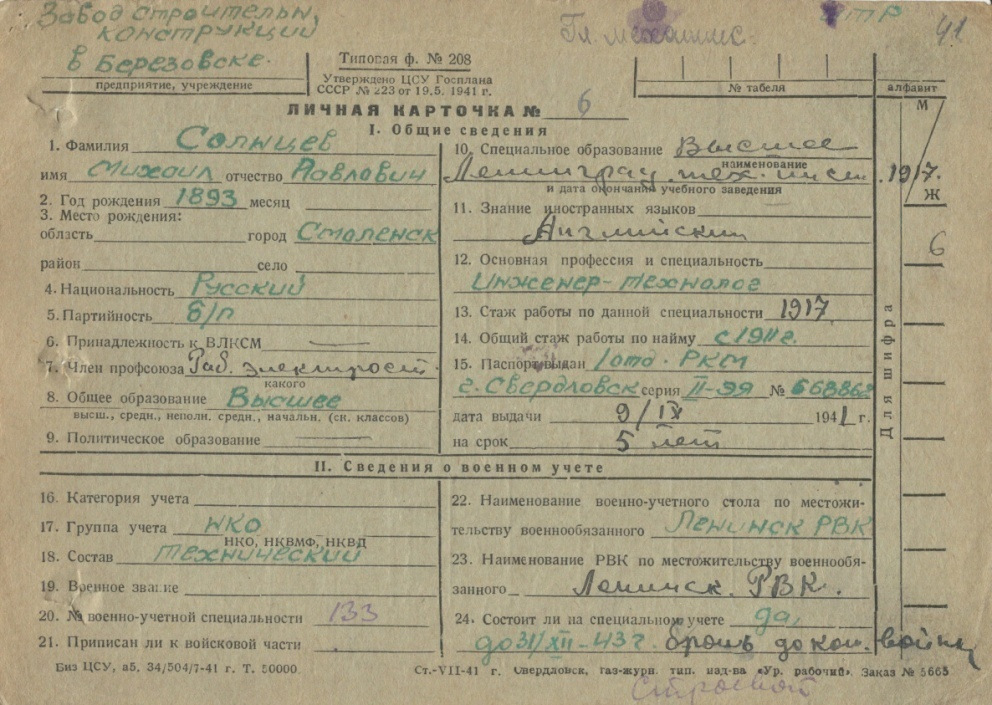 Завод строительн.
конструкций
в Березовске.
предприятие, учреждение
Типовая ф. № 208
Утверждено ЦСУ Госплана
СССР № 223 от 19.5. 1941 г.
Гл. механик
ИТР
41
№ табеля
алфавит
ЛИЧНАЯ КАРТОЧКА № 6
I. Общие сведения
1. Фамилия Солнцев
имя Михаил отчество Павлович
2. Год рождения 1893 месяц
3. Место рождения:
область город Смоленск
район село
4. Национальность Русский
5. Партийность б/п
6. Принадлежность к ВЛКСМ —
7. Член профсоюза Раб. электрост.
какого
8. Общее образование Высшее
высш., средн., неполн. средн., начальн. (сн. классов)
9. Политическое образование —
10. Специальное образование Высшее
наименование
Ленинград. тех. инст. 1917.
и дата окончания учебного заведения
11. Знание иностранных языков
Английский
12. Основная профессия и специальность
Инженер-технолог
13. Стаж работы по данной специальности 1917
14. Общий стаж работы по найму с 1911 г.
15. Паспорт выдан 1 отд. РКМ
г. Свердловск серия II-ЯЯ № 668862
дата выдачи 9/IX 1941 г.
на срок 5 лет
М
Ж
6
Для шифра
II. Сведения о военном учете
16. Категория учета
17. Группа учета НКО
НКО, НКВМФ, НКВД
18. Состав технический
19. Военное звание
20. № военно-учетной специальности 133
21. Приписан ли к войсковой части
22. Наименование военно-учетного стола по местожи-
тельству военнообязанного Ленинск РВК
23. Наименование РВК по местожительству военнообя-
занного Ленинск. РВК.
24. Состоит ли на специальном учете да,
до 31/XII-43 г. бронь до кон. войны
Биз ЦСУ, аб. 34/504/7-41 г. Т. 50000
Ст.-VII-41 г. Свердловск, газ-журн. тип. изд-ва «Ур. рабочий». Заказ № 5665
Строевой